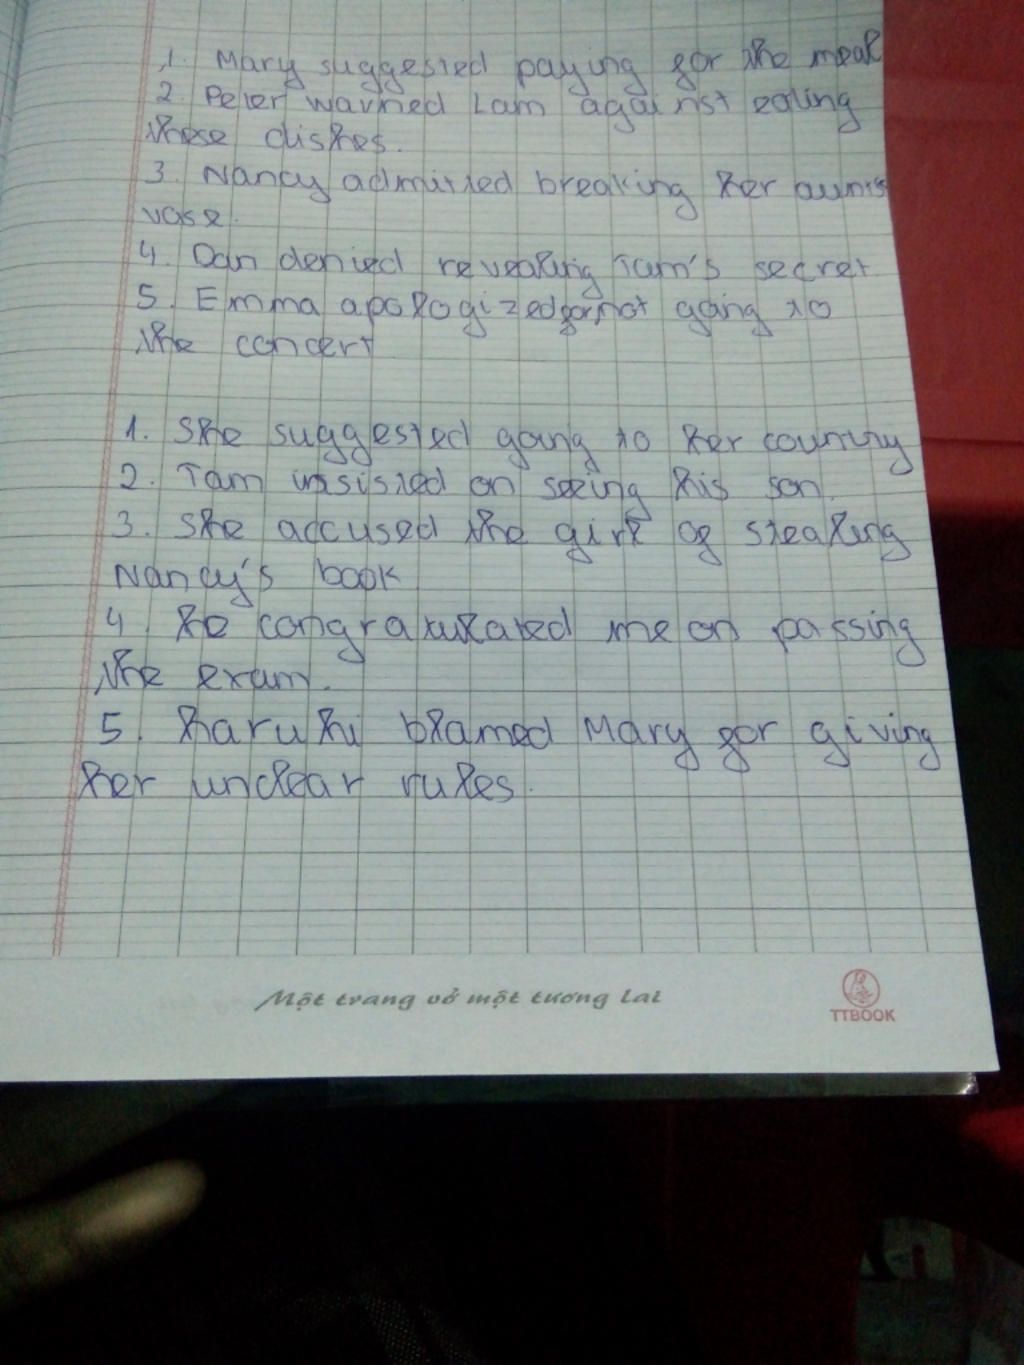 1. Mary suggested paying for the meal
2. Peter warned Lam against eating
these dishes.
3. Nancy admitted breaking her aunt's
vase.
4. Dan denied revealing Tam's secret
5. Emma apologized for not going to
the concert
1. She suggested going to her country
2. Tam insisted on seeing his son.
3. She accused the girl of stealing
Nancy's book
4. he congratulated me on passing
the exam.
5. haruhi blamed Mary for giving
her unclear rules.
Một trang vở một tương lai
TTBOOK